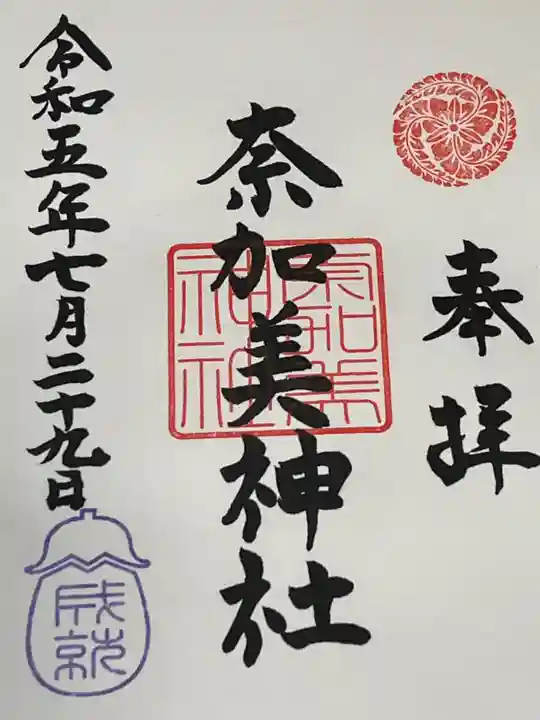 奉拝
奈加美神社
奈加美
神社
令和五年七月二十九日
成就